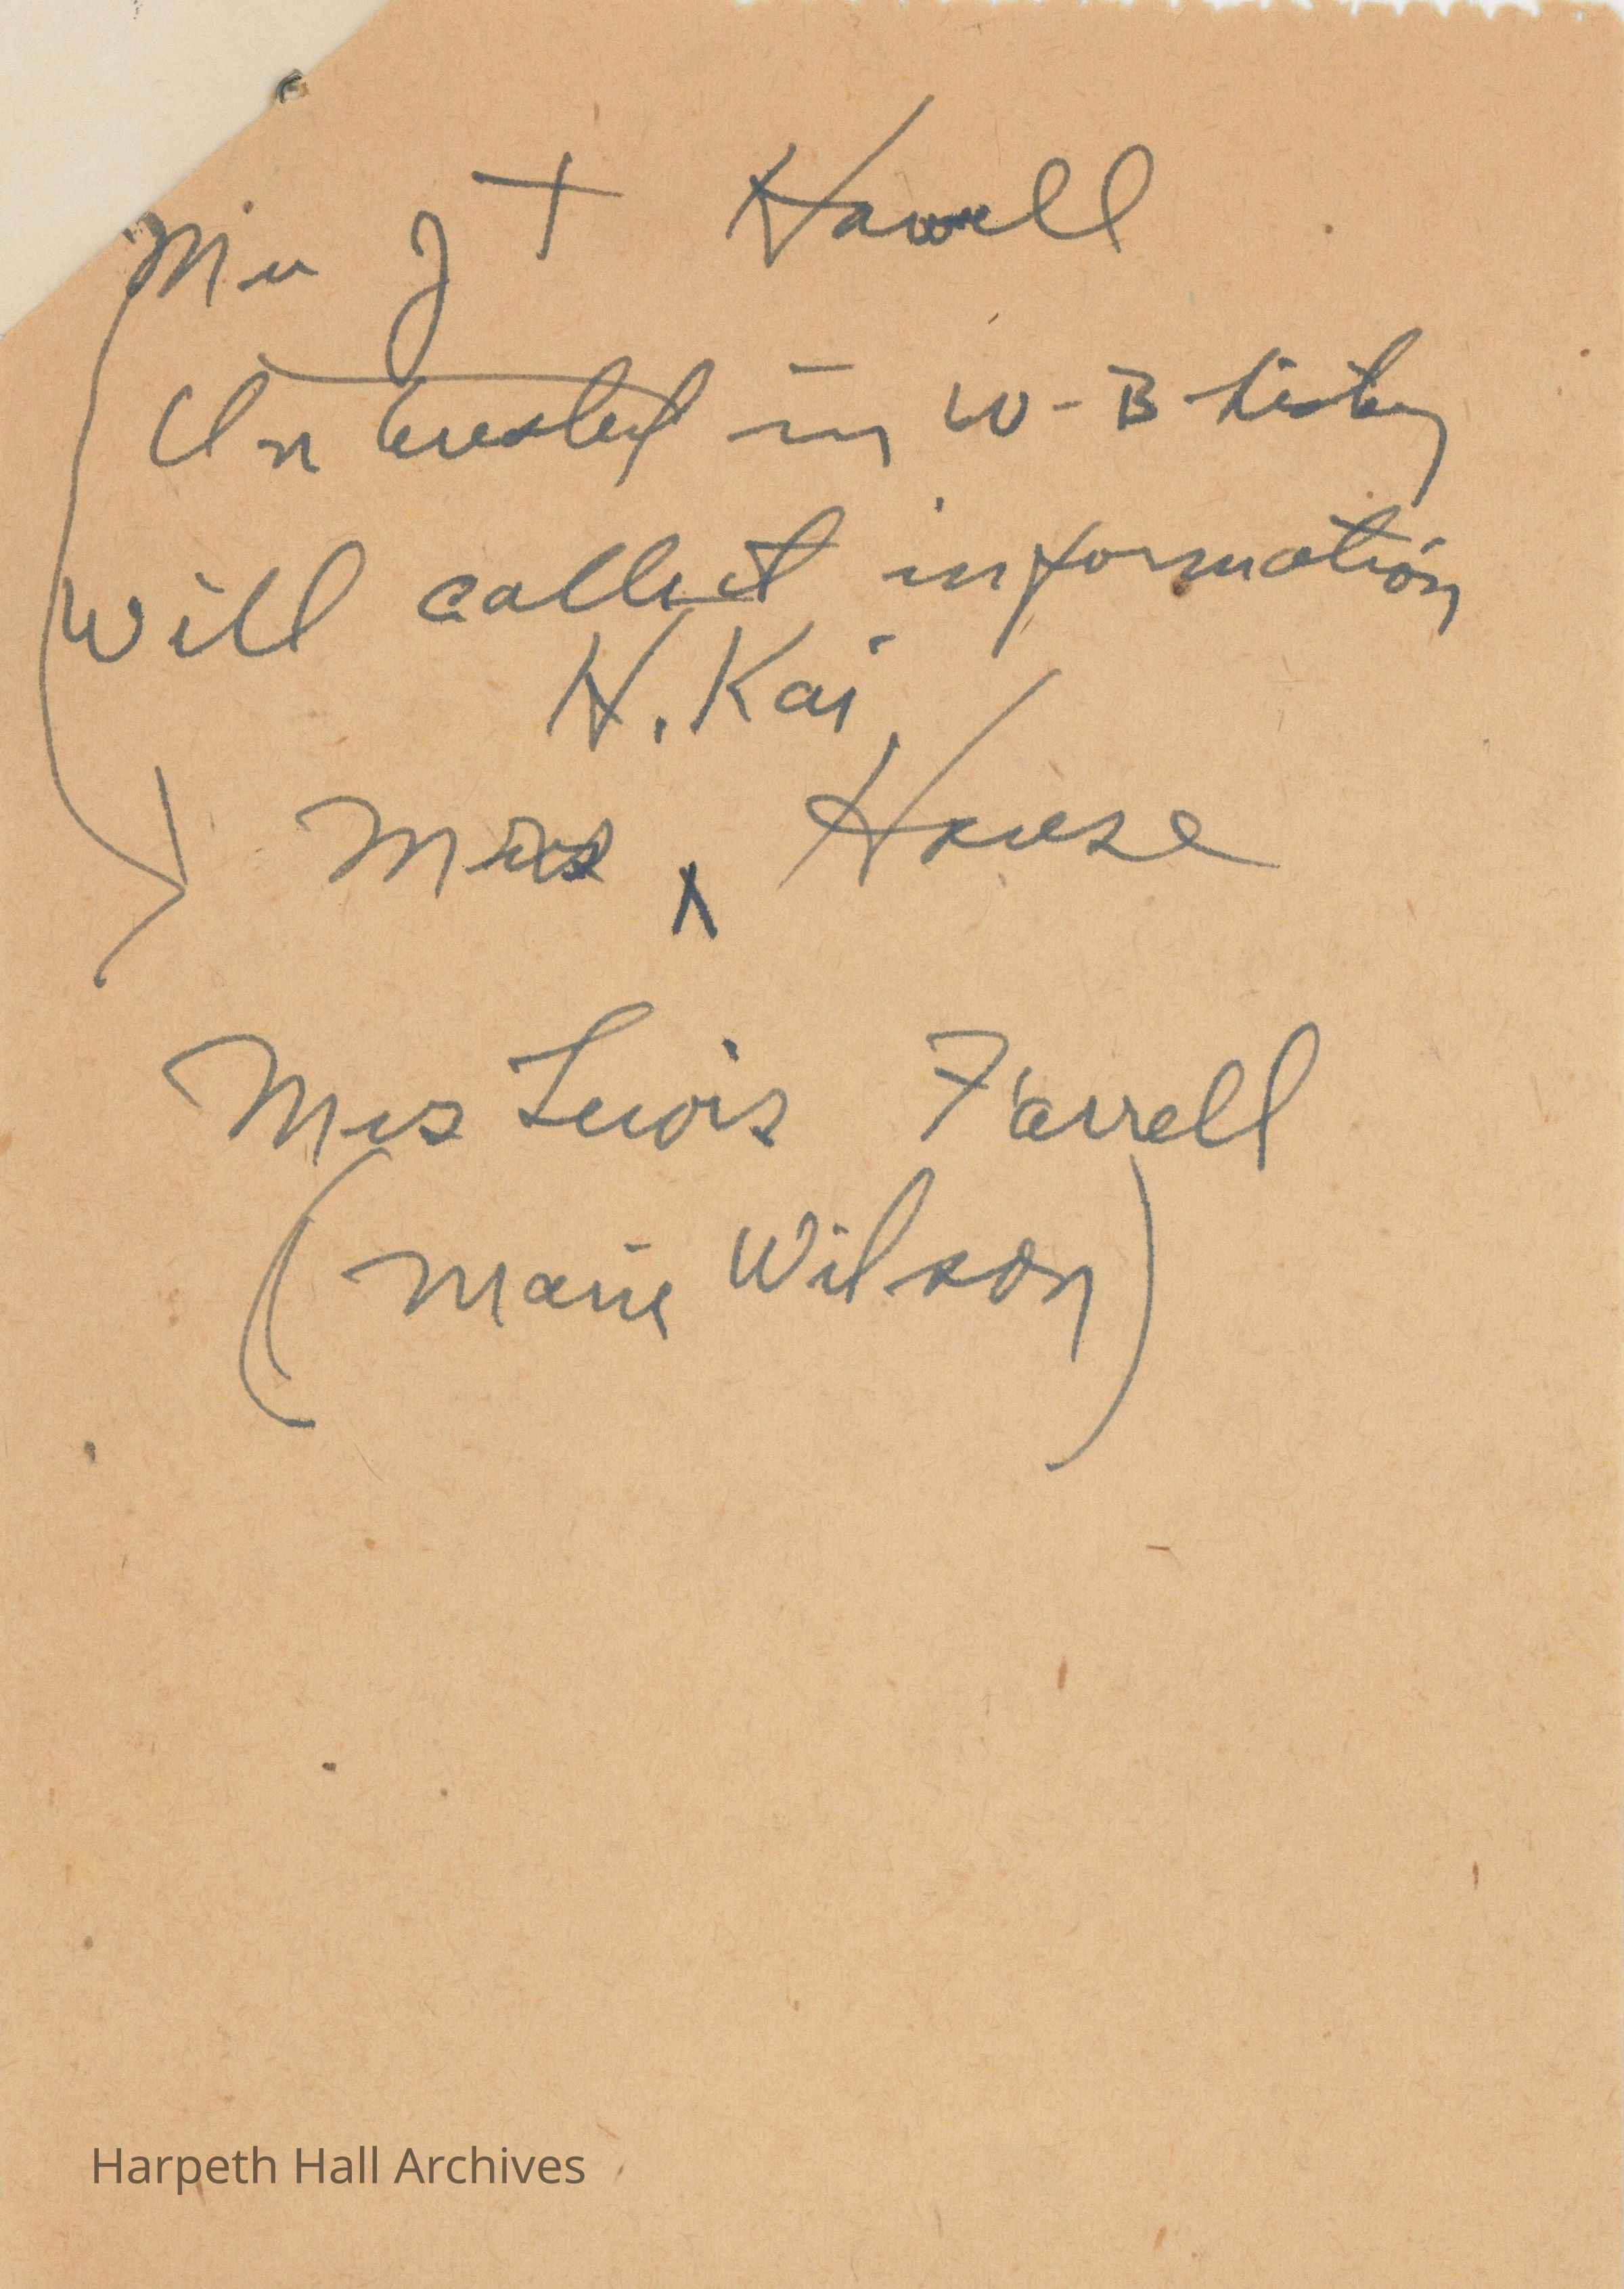 J T Howell
Interested in W-B history
Will collect information
N. Kai
Mrs House
Mrs Lewis Farrell
(Marie Wilson)
Harpeth Hall Archives